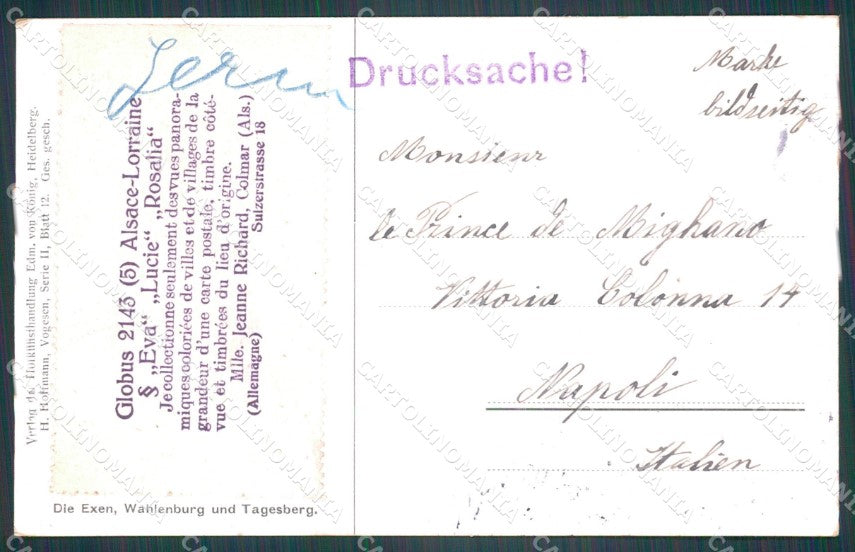 Drucksache!
Marke
bildseitig
Monsieur
le Prince de Mighano
Vittoria Colonna 14
Napoli
Italien
Globus 2143 (5) Alsace-Lorraine
§ „Eva“ „Lucie“ „Rosalia“
Je collectionne seulement des vues panora-
miques coloriées de villes et de villages de la
grandeur d'une carte postale, timbre côté-
vue et timbrées du lieu d'origine.
Mlle. Jeanne Richard, Colmar (Als.)
(Allemagne) Sulzerstrasse 18
Verlag der Hofkunsthandlung Edm. von König, Heidelberg.
H. Hoffmann, Vogesen, Serie II, Blatt 12. Ges. gesch.
Die Exen, Wahlenburg und Tagesberg.
CARTOLINOMANIA